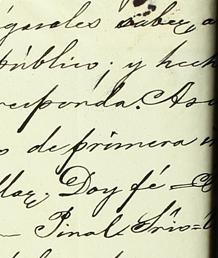 garales saber, a
público; y hech
responda. Asi
s de primera in
llar; Doy fé =
— Pinal. Srio=